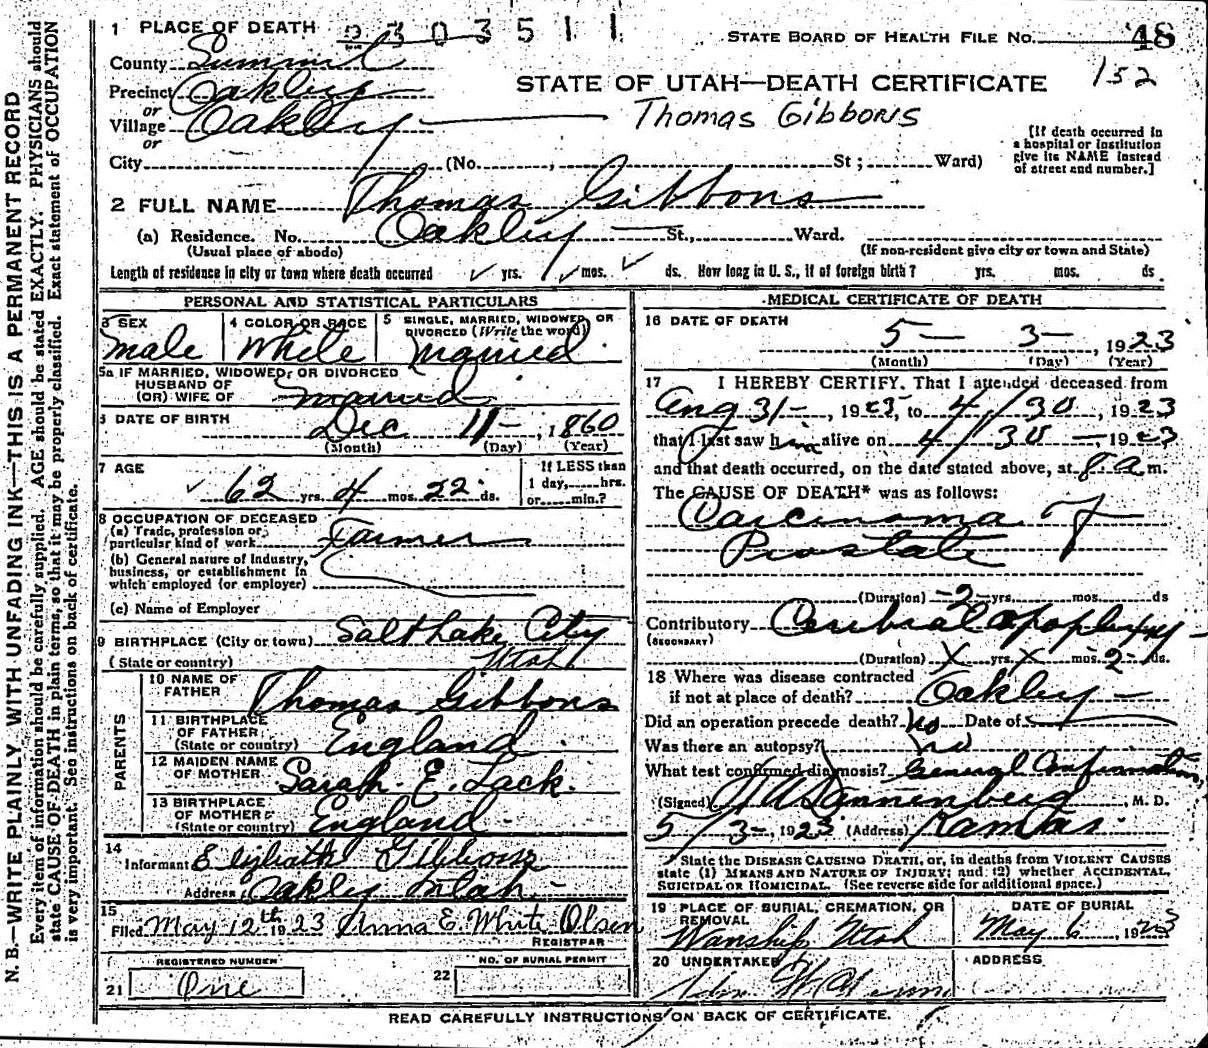 1 PLACE OF DEATH 2303511 STATE BOARD OF HEALTH FILE No. 48
County Summit
152
STATE OF UTAH—DEATH CERTIFICATE
Precinct Oakley
or
Village Oakley Thomas Gibbons
or
City (No. , St ; Ward)
[If death occurred in
a hospital or institution
give its NAME instead
of street and number.]
2 FULL NAME Thomas Gibbons
(a) Residence. No. Oakley St., Ward.
(Usual place of abode) (If non-resident give city or town and State)
Length of residence in city or town where death occurred yrs. mos. ds. How long in U. S., if of foreign birth? yrs. mos. ds.
PERSONAL AND STATISTICAL PARTICULARS
3 SEX
Male
4 COLOR OR RACE
White
5 SINGLE, MARRIED, WIDOWED, OR
DIVORCED (Write the word)
Married
5a IF MARRIED, WIDOWED, OR DIVORCED
HUSBAND OF
(OR) WIFE OF Married
6 DATE OF BIRTH
Dec 11 - , 1860
(Month) (Day) (Year)
7 AGE
62 yrs. 4 mos. 22 ds.
If LESS than
1 day, hrs.
or min.?
8 OCCUPATION OF DECEASED
(a) Trade, profession or
particular kind of work Farmer
(b) General nature of Industry,
business, or establishment in
which employed (or employer)
(c) Name of Employer
9 BIRTHPLACE (City or town) Salt Lake City
(State or country) Utah
PARENTS
10 NAME OF
FATHER Thomas Gibbons
11 BIRTHPLACE
OF FATHER
(State or country) England
12 MAIDEN NAME
OF MOTHER Sarah E. Lack.
13 BIRTHPLACE
OF MOTHER
(State or country) England
14
Informant Elizbath Gibbons
Address Oakley Utah
15
Filed May 12th 1923 Anna E. White Olsen
REGISTRAR
REGISTERED NUMBER
21 One
NO. OF BURIAL PERMIT
22
MEDICAL CERTIFICATE OF DEATH
16 DATE OF DEATH
5 - 3 - , 1923
(Month) (Day) (Year)
17 I HEREBY CERTIFY, That I attended deceased from
Aug 31 - , 1923, to 4/30 , 1923
that I last saw him alive on 4/30 - , 1923
and that death occurred, on the date stated above, at 8 a m.
The CAUSE OF DEATH* was as follows:
Carcinoma of
Prostate
(Duration) -2- yrs. mos. ds
Contributory Ceribral apoplexy
(SECONDARY)
(Duration) X yrs. X mos. 2 - ds.
18 Where was disease contracted
if not at place of death? Oakley -
Did an operation precede death? No Date of
Was there an autopsy? no
What test confirmed diagnosis? General Confirmation
(Signed) Dannenberg , M. D.
5/3 - , 1923 (Address) Kamas.
* State the DISEASE CAUSING DEATH, or, in deaths from VIOLENT CAUSES
state (1) MEANS AND NATURE OF INJURY; and (2) whether ACCIDENTAL,
SUICIDAL OR HOMICIDAL. (See reverse side for additional space.)
19 PLACE OF BURIAL, CREMATION, OR
REMOVAL
Wanship Utah
DATE OF BURIAL
May 6 , 1923
20 UNDERTAKER
ADDRESS
READ CAREFULLY INSTRUCTIONS ON BACK OF CERTIFICATE.
N. B.—WRITE PLAINLY WITH UNFADING INK—THIS IS A PERMANENT RECORD
Every item of information should be carefully supplied. AGE should be stated EXACTLY. PHYSICIANS should
state CAUSE OF DEATH in plain terms, so that it may be properly classified. Exact statement of OCCUPATION
is very important. See instructions on back of certificate.